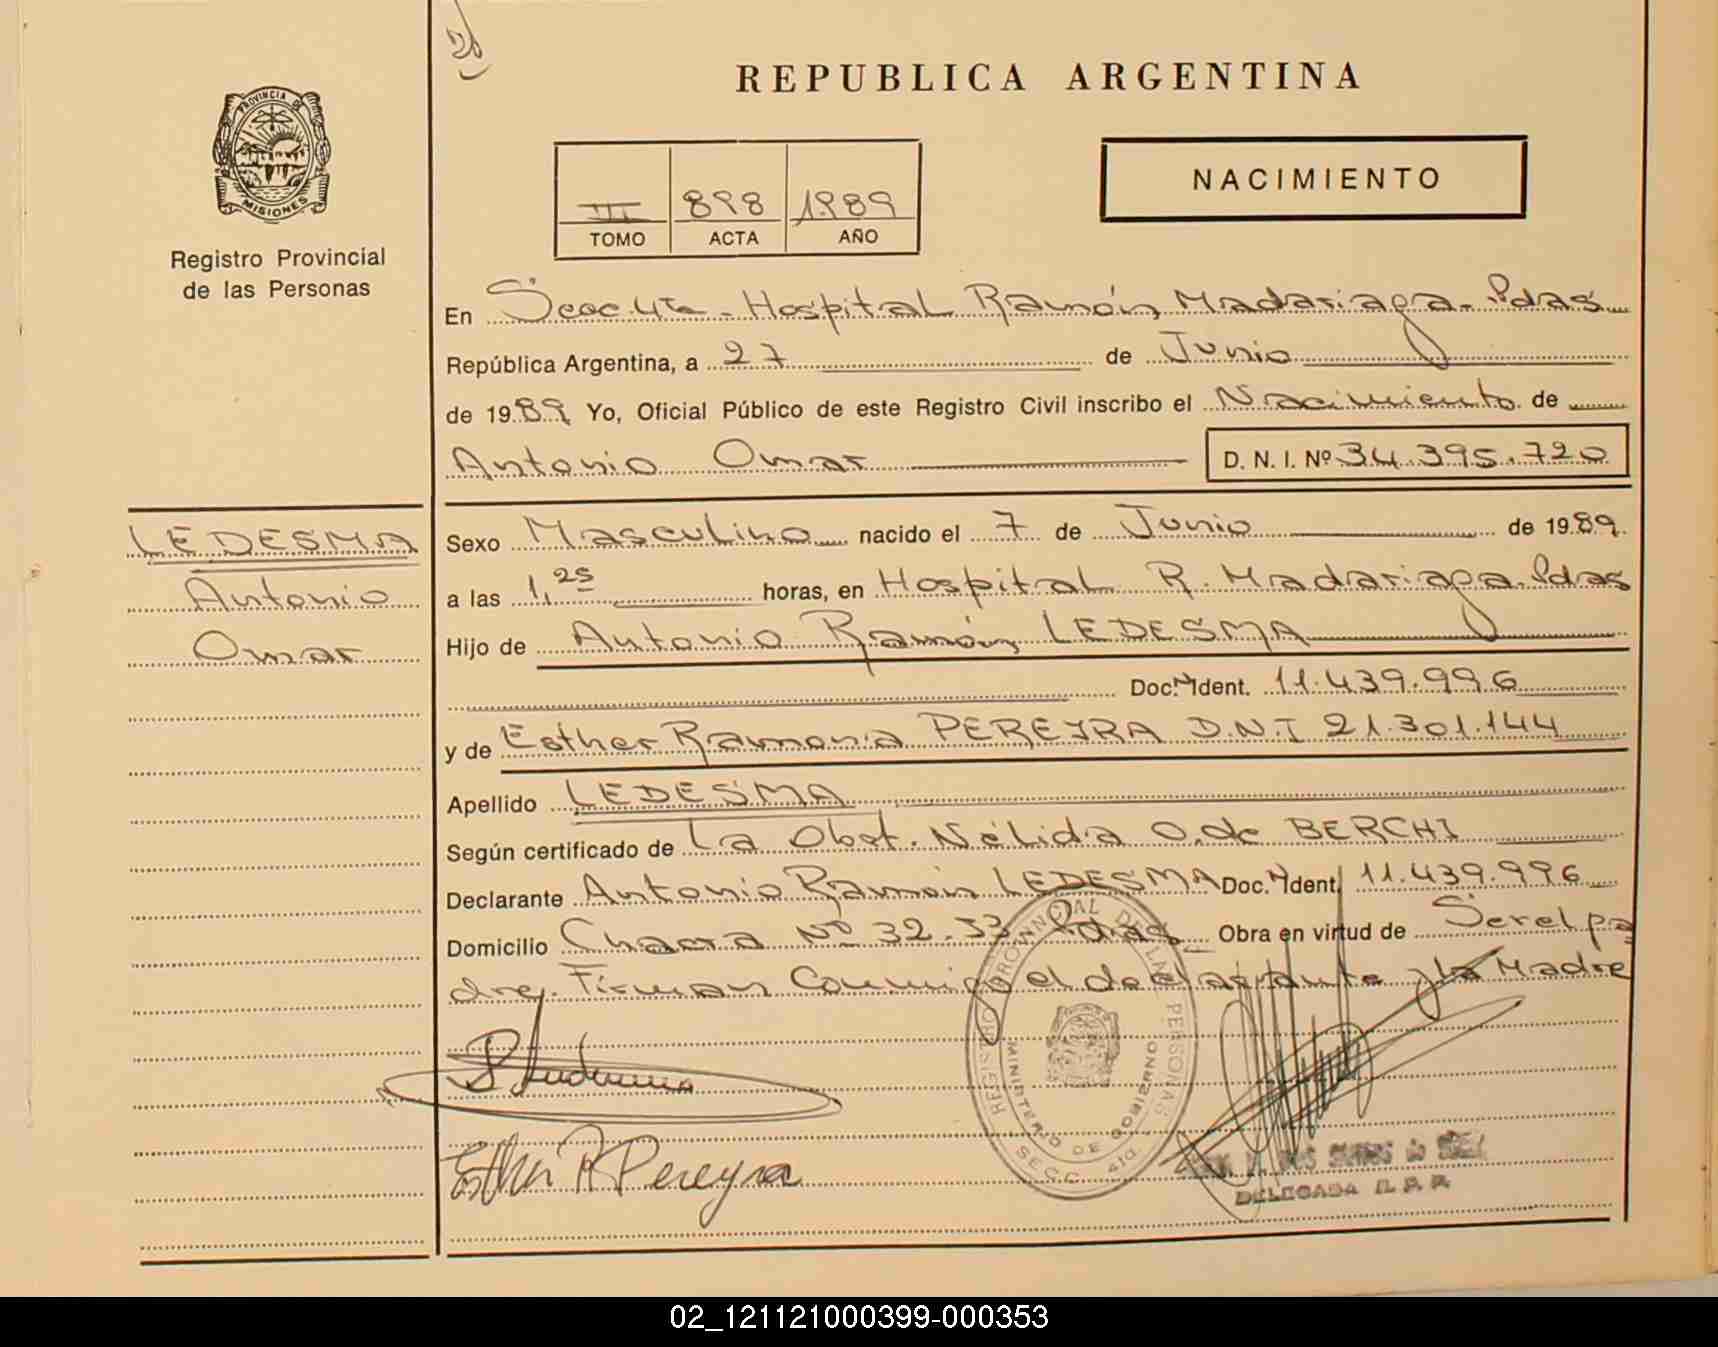 REPUBLICA ARGENTINA
PROVINCIA DE MISIONES
Registro Provincial
de las Personas
III 898 1989
TOMO ACTA AÑO
NACIMIENTO
En Secc. 4ta - Hospital Ramón Madariaga - Pdas
República Argentina, a 27 de Junio
de 1989 Yo, Oficial Público de este Registro Civil inscribo el Nacimiento de
Antonio Omar D. N. I. Nº 34.395.720
LEDESMA
Antonio
Omar
Sexo Masculino nacido el 7 de Junio de 1989.
a las 1,25 horas, en Hospital R. Madariaga. Pdas
Hijo de Antonio Ramón LEDESMA
Doc. Ident. 11.439.996
y de Esther Ramona PEREYRA D.N.I 21.301.144
Apellido LEDESMA
Según certificado de La Obst. Nélida O. de BERCHI
Declarante Antonio Ramón LEDESMA Doc. Ident. 11.439.996
Domicilio Chacra Nº 32-33 Pdas Obra en virtud de Ser el pa
dre. Firman Conmigo el declarante y la Madre
REGISTRO PROVINCIAL DE LAS PERSONAS
MINISTERIO DE GOBIERNO
SECC. 4ta.
Esther R Pereyra
DELEGADA R. P. P.
02_121121000399-000353